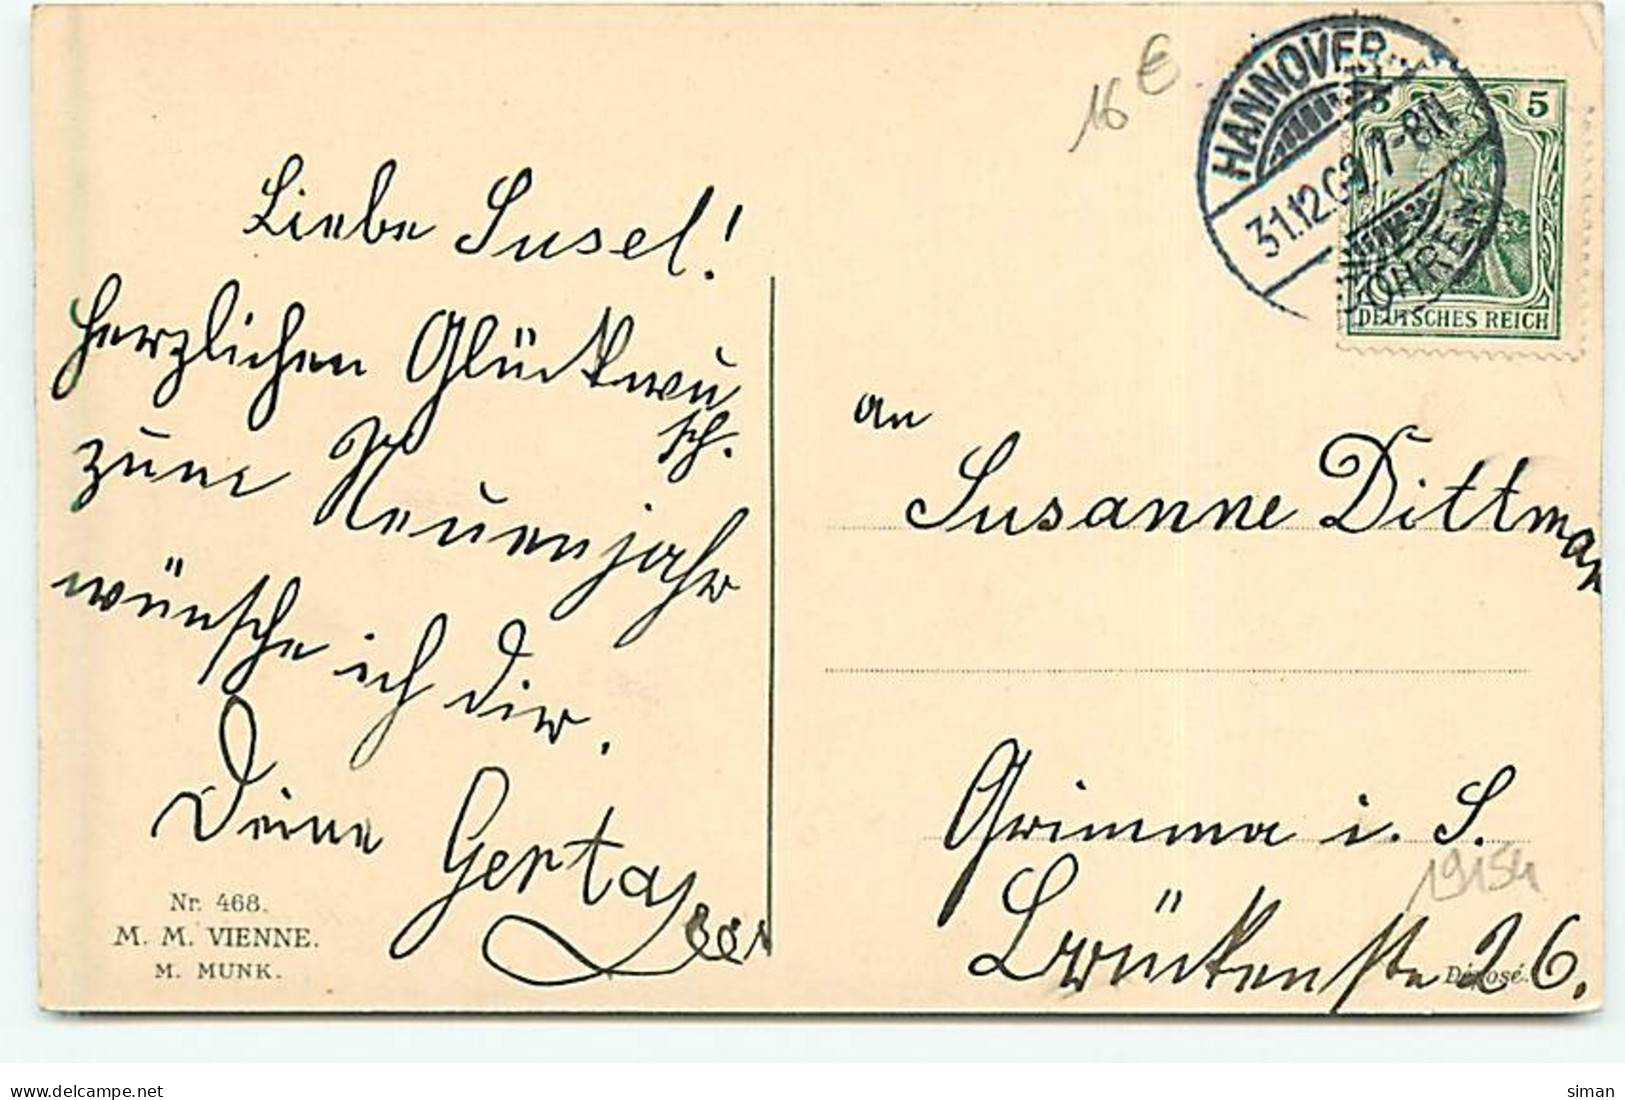 Liebe Susel!
herzlichen Glückwu
sch.
zum Neuenjahr
wünsche ich dir.
Deine Gerta
Nr. 468.
M. M. VIENNE.
M. MUNK.
16 €
HANNOVER
31.12.09. 7-8N
DÖHREN
5 5
DEUTSCHES REICH
an
Susanne Dittman
Grimma i. S.
19154
Brückenstr 26.
Déposé.
delcampe.net
siman